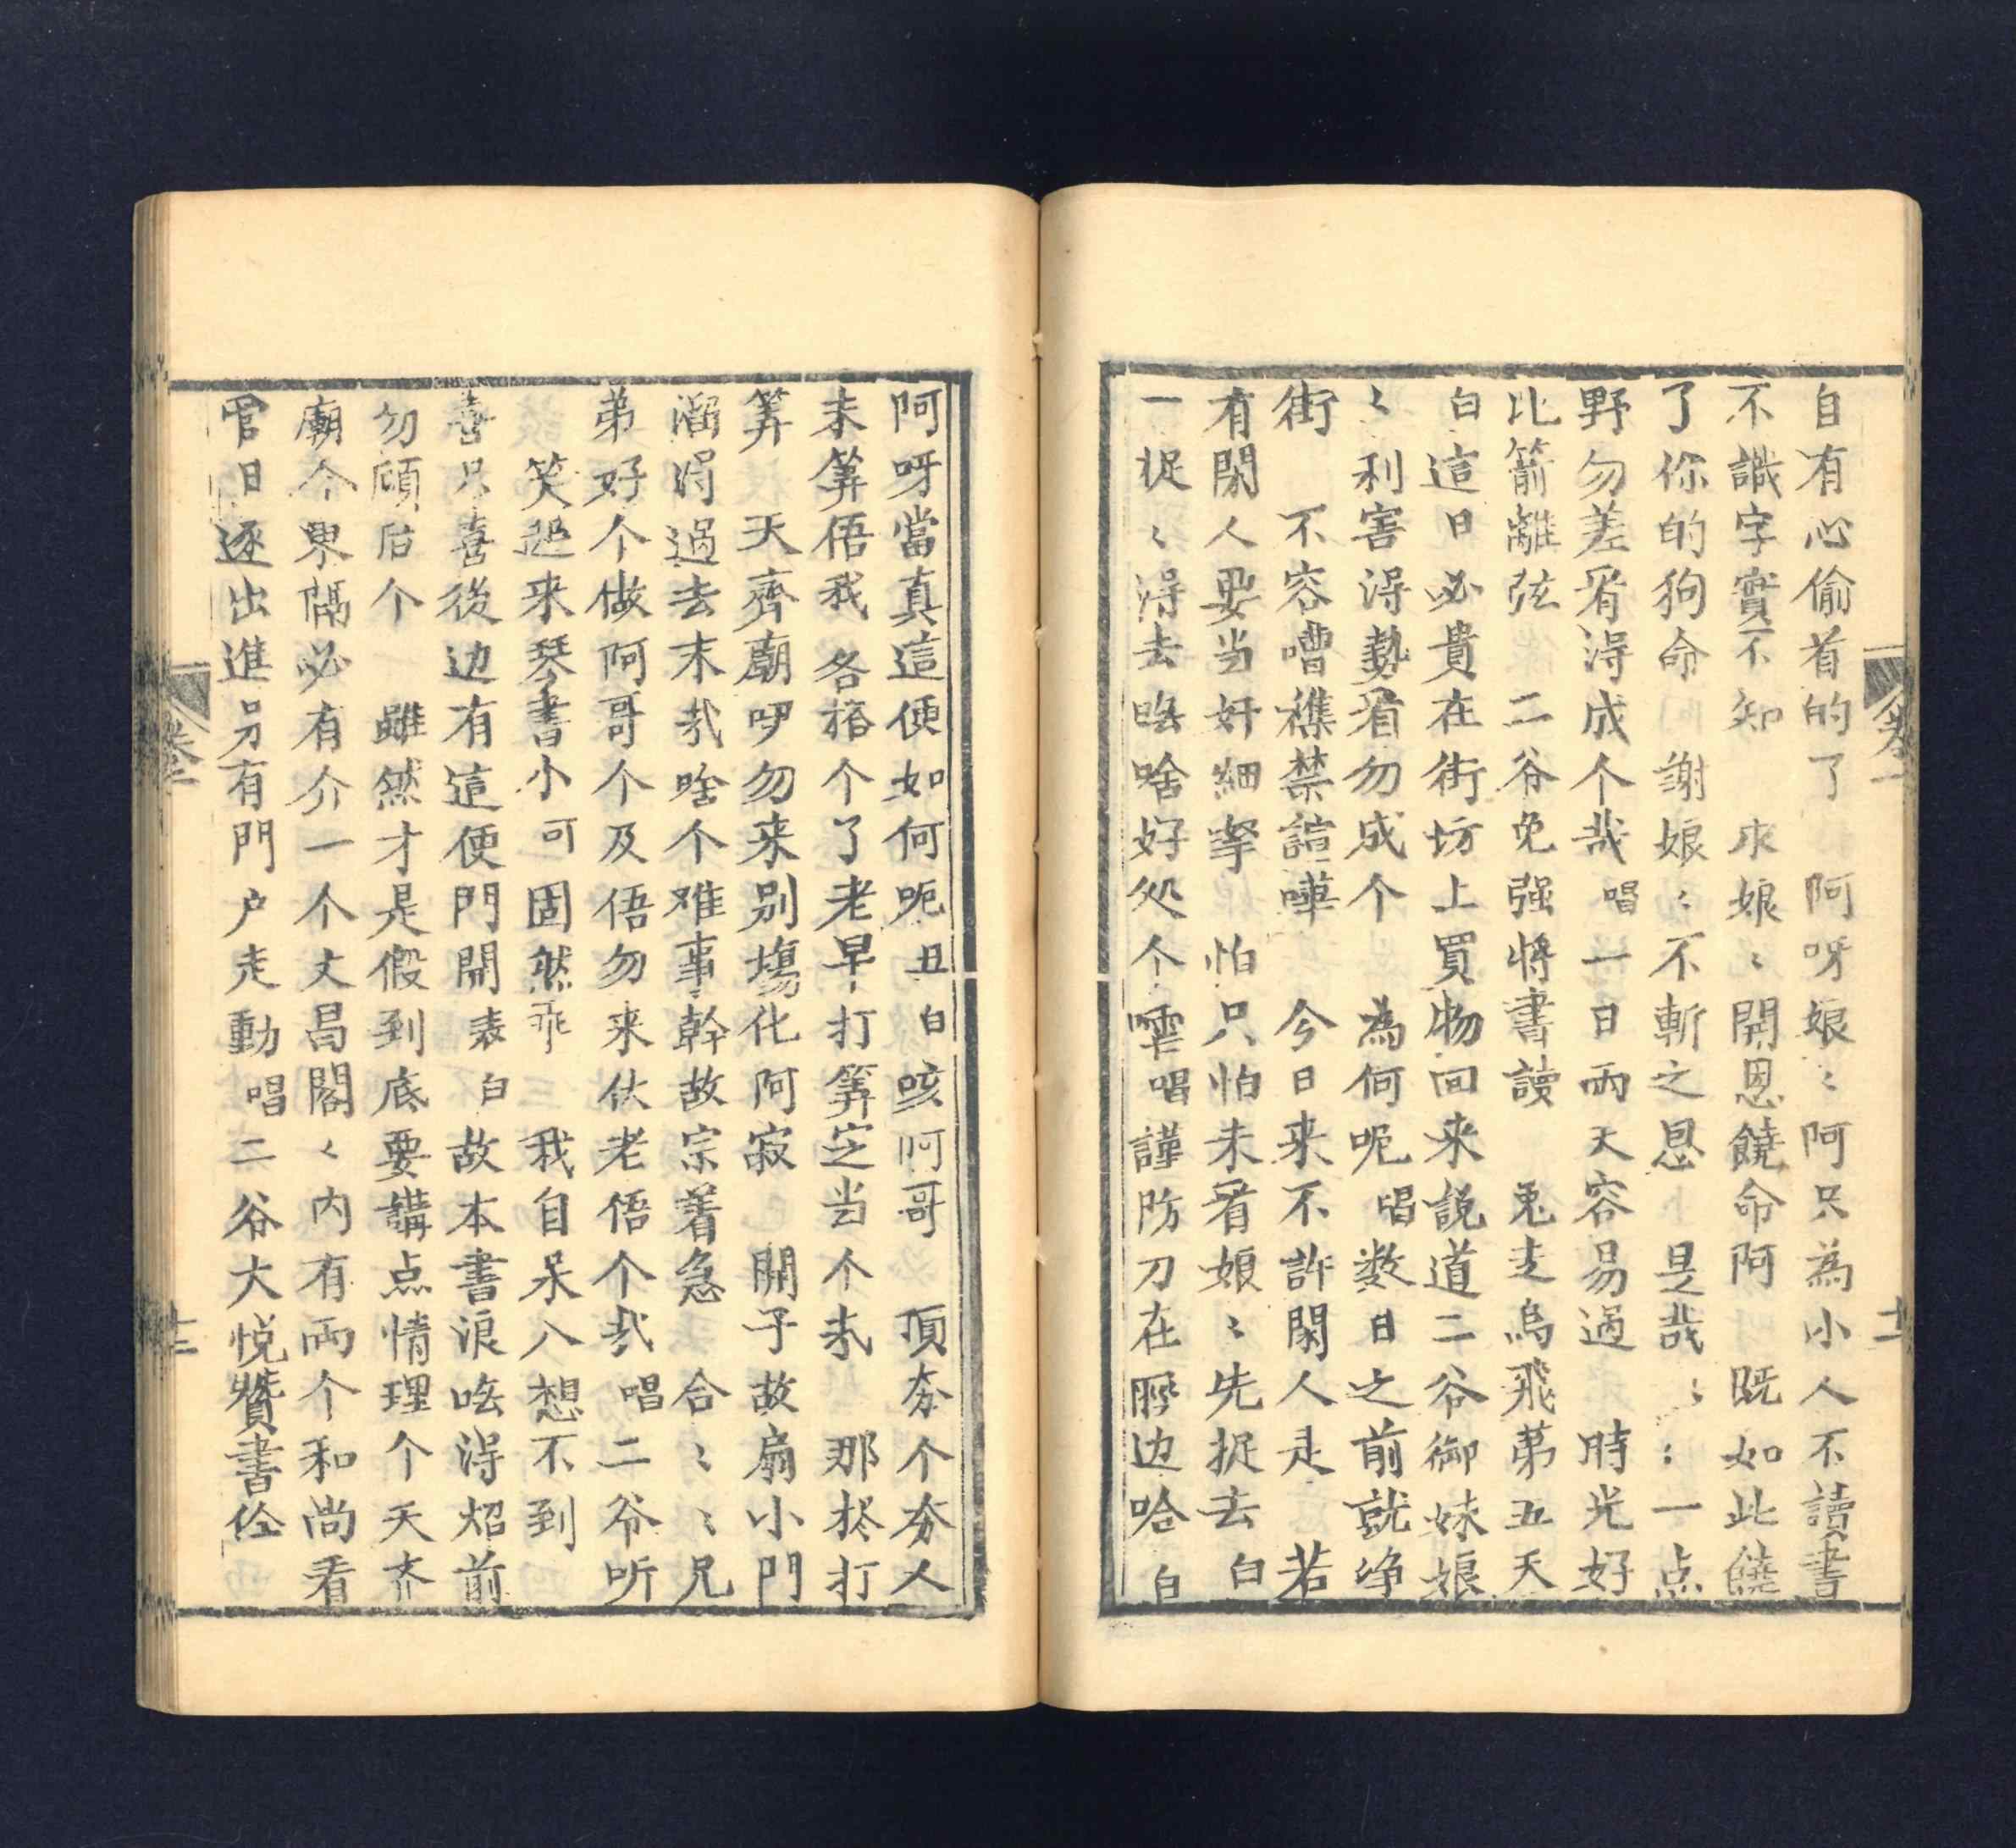 自有心偷着的了 阿呀娘〻阿只為小人不讀書
不識字實不知 求娘〻開恩饒命阿 既如此饒
了你的狗命 謝娘〻不斬之恩 是哉〻〻一点
野勿差看淂成个哉唱一日兩天容易過 時光好
比箭離弦 二爷免强將書讀 兎走烏飛第五天
白這日必貴在街坊上買物回来説道二爷御妹娘
〻利害淂勢看勿成个 為何呃唱数日之前就净
街 不容嘈襍禁諠嘩 今日来不許閑人走 若
有閑人要当奸細拏 怕只怕未看娘〻先捉去白
一捉〻淂去咗啥好処个嚡唱謹防刀在脛边哈白
卷一
十二
阿呀當真這便如何呃丑白咳阿哥 頂夯个夯人
未筭俉我 各樁个了老早打筭定当个哉 那柊打
筭 天齊廟吚勿来别塲化阿寂 開子故扇小門
溜淂過去末哉啥个难事幹故宗着急 合〻〻兄
弟好个做阿哥个及俉勿来伏老俉个哉唱二爷听
笑起来琴書小可固然乖 我自呆人想不到
喜只喜後边有這便門開表白故本書浪咗淂炤前
勿顧后个 雖然才是假到底要講点情理个天齐
廟个界隔必有介一个文昌閣〻内有兩个和尚看
官日逐出進另有門户走動唱二爷大悦贊書佺
卷一
十三